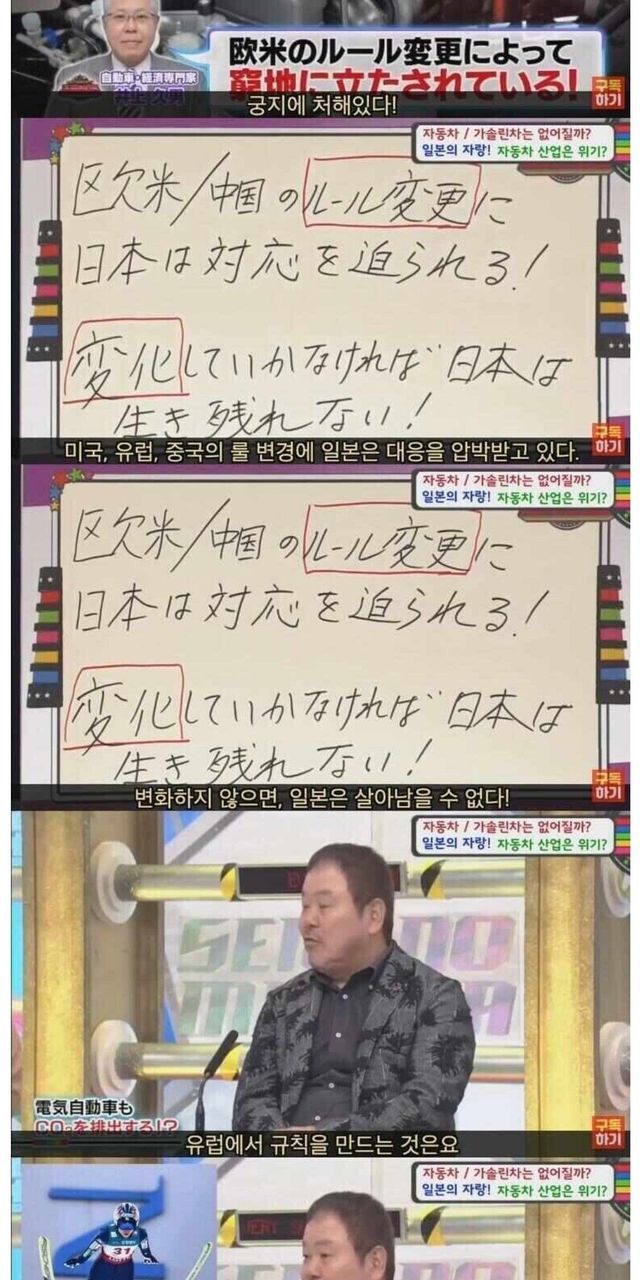 欧米のルール変更によって
自動車・経済専門家
窮地に立たされている!
井上久男
궁지에 처해있다!
구독
하기
자동차 / 가솔린차는 없어질까?
일본의 자랑! 자동차 산업은 위기?
欧米/中国のルール変更に
日本は対応を迫られる!
変化していかなければ日本は
生き残れない!
구독
하기
미국, 유럽, 중국의 룰 변경에 일본은 대응을 압박받고 있다.
자동차 / 가솔린차는 없어질까?
일본의 자랑! 자동차 산업은 위기?
欧米/中国のルール変更に
日本は対応を迫られる!
変化していかなければ日本は
生き残れない!
구독
하기
변화하지 않으면, 일본은 살아남을 수 없다!
자동차 / 가솔린차는 없어질까?
일본의 자랑! 자동차 산업은 위기?
電気自動車も
CO₂を排出する!?
구독
하기
유럽에서 규칙을 만드는 것은요
자동차 / 가솔린차는 없어질까?
일본의 자랑! 자동차 산업은 위기?
31